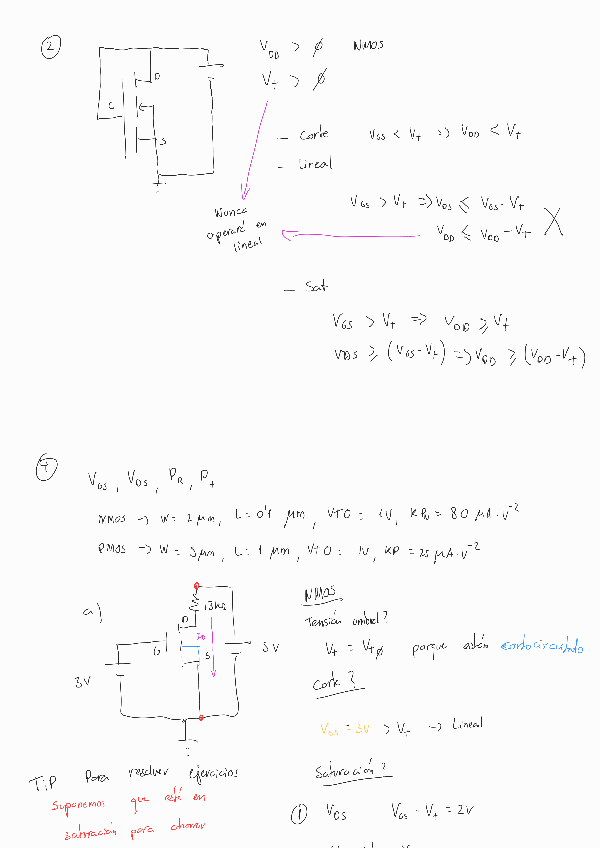 2
V_DD > ∅ NMOS
V_t > ∅
D
G
S
— Corte V_GS < V_t => V_DD < V_t
— Lineal
V_GS > V_t => V_DS ≤ V_GS - V_t
V_DD ≤ V_DD - V_t
Nunca
operará en
lineal
— Sat
V_GS > V_t => V_DD ≥ V_t
V_DS ≥ (V_GS - V_t) => V_DD ≥ (V_DD - V_t)
V_GS, V_DS, P_R, P_t
NMOS -> W = 2 μm, L = 0'4 μm, VTO = 1V, KP_N = 80 μA·V^-2
PMOS -> W = 5 μm, L = 1 μm, VTO = 1V, KP = 25 μA·V^-2
a)
D
ID
G
S
5V
3V
NMOS
Tensión umbral?
V_t = V_t∅ porque están cortocircuitado
Corte?
V_GS = 3V > V_t -> Lineal
Saturación?
1 V_DS V_GS - V_t = 2V
TIP Para resolver ejercicios
Suponemos que esté en
saturación para ahorrar